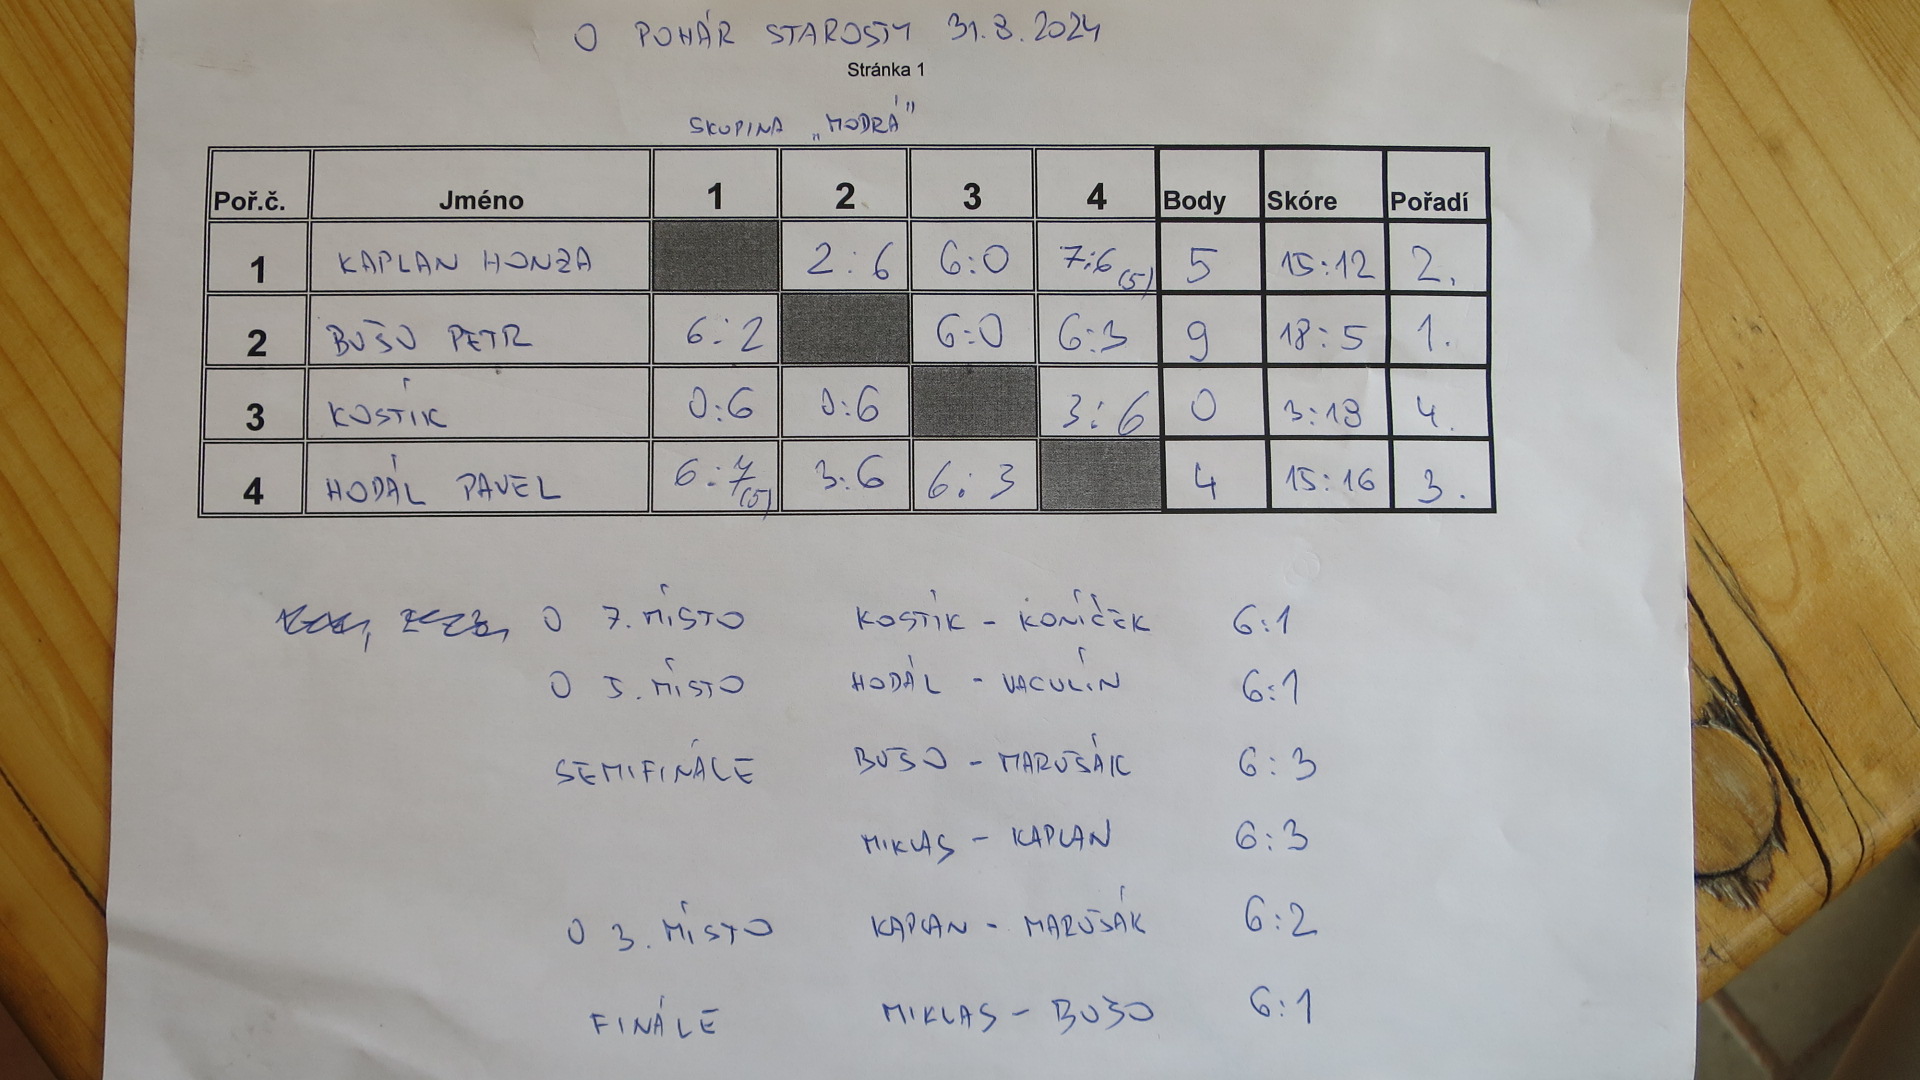 O POHÁR STAROSTY 31.8.2024
Stránka 1
SKUPINA „MODRÁ"
Poř.č. Jméno 1 2 3 4 Body Skóre Pořadí
1 KAPLAN HONZA 2:6 6:0 7:6 (5) 5 15:12 2.
2 BUŠO PETR 6:2 6:0 6:3 9 18:5 1.
3 KOSTÍK 0:6 0:6 3:6 0 3:18 4.
4 HODÁL PAVEL 6:7 (5) 3:6 6:3 4 15:16 3.
O 7. MÍSTO KOSTÍK - KONÍČEK 6:1
O 5. MÍSTO HODÁL - VACULÍN 6:1
SEMIFINÁLE BUŠO - MARUŠÁK 6:3
MIKLAS - KAPLAN 6:3
O 3. MÍSTO KAPLAN - MARUŠÁK 6:2
FINÁLE MIKLAS - BUŠO 6:1